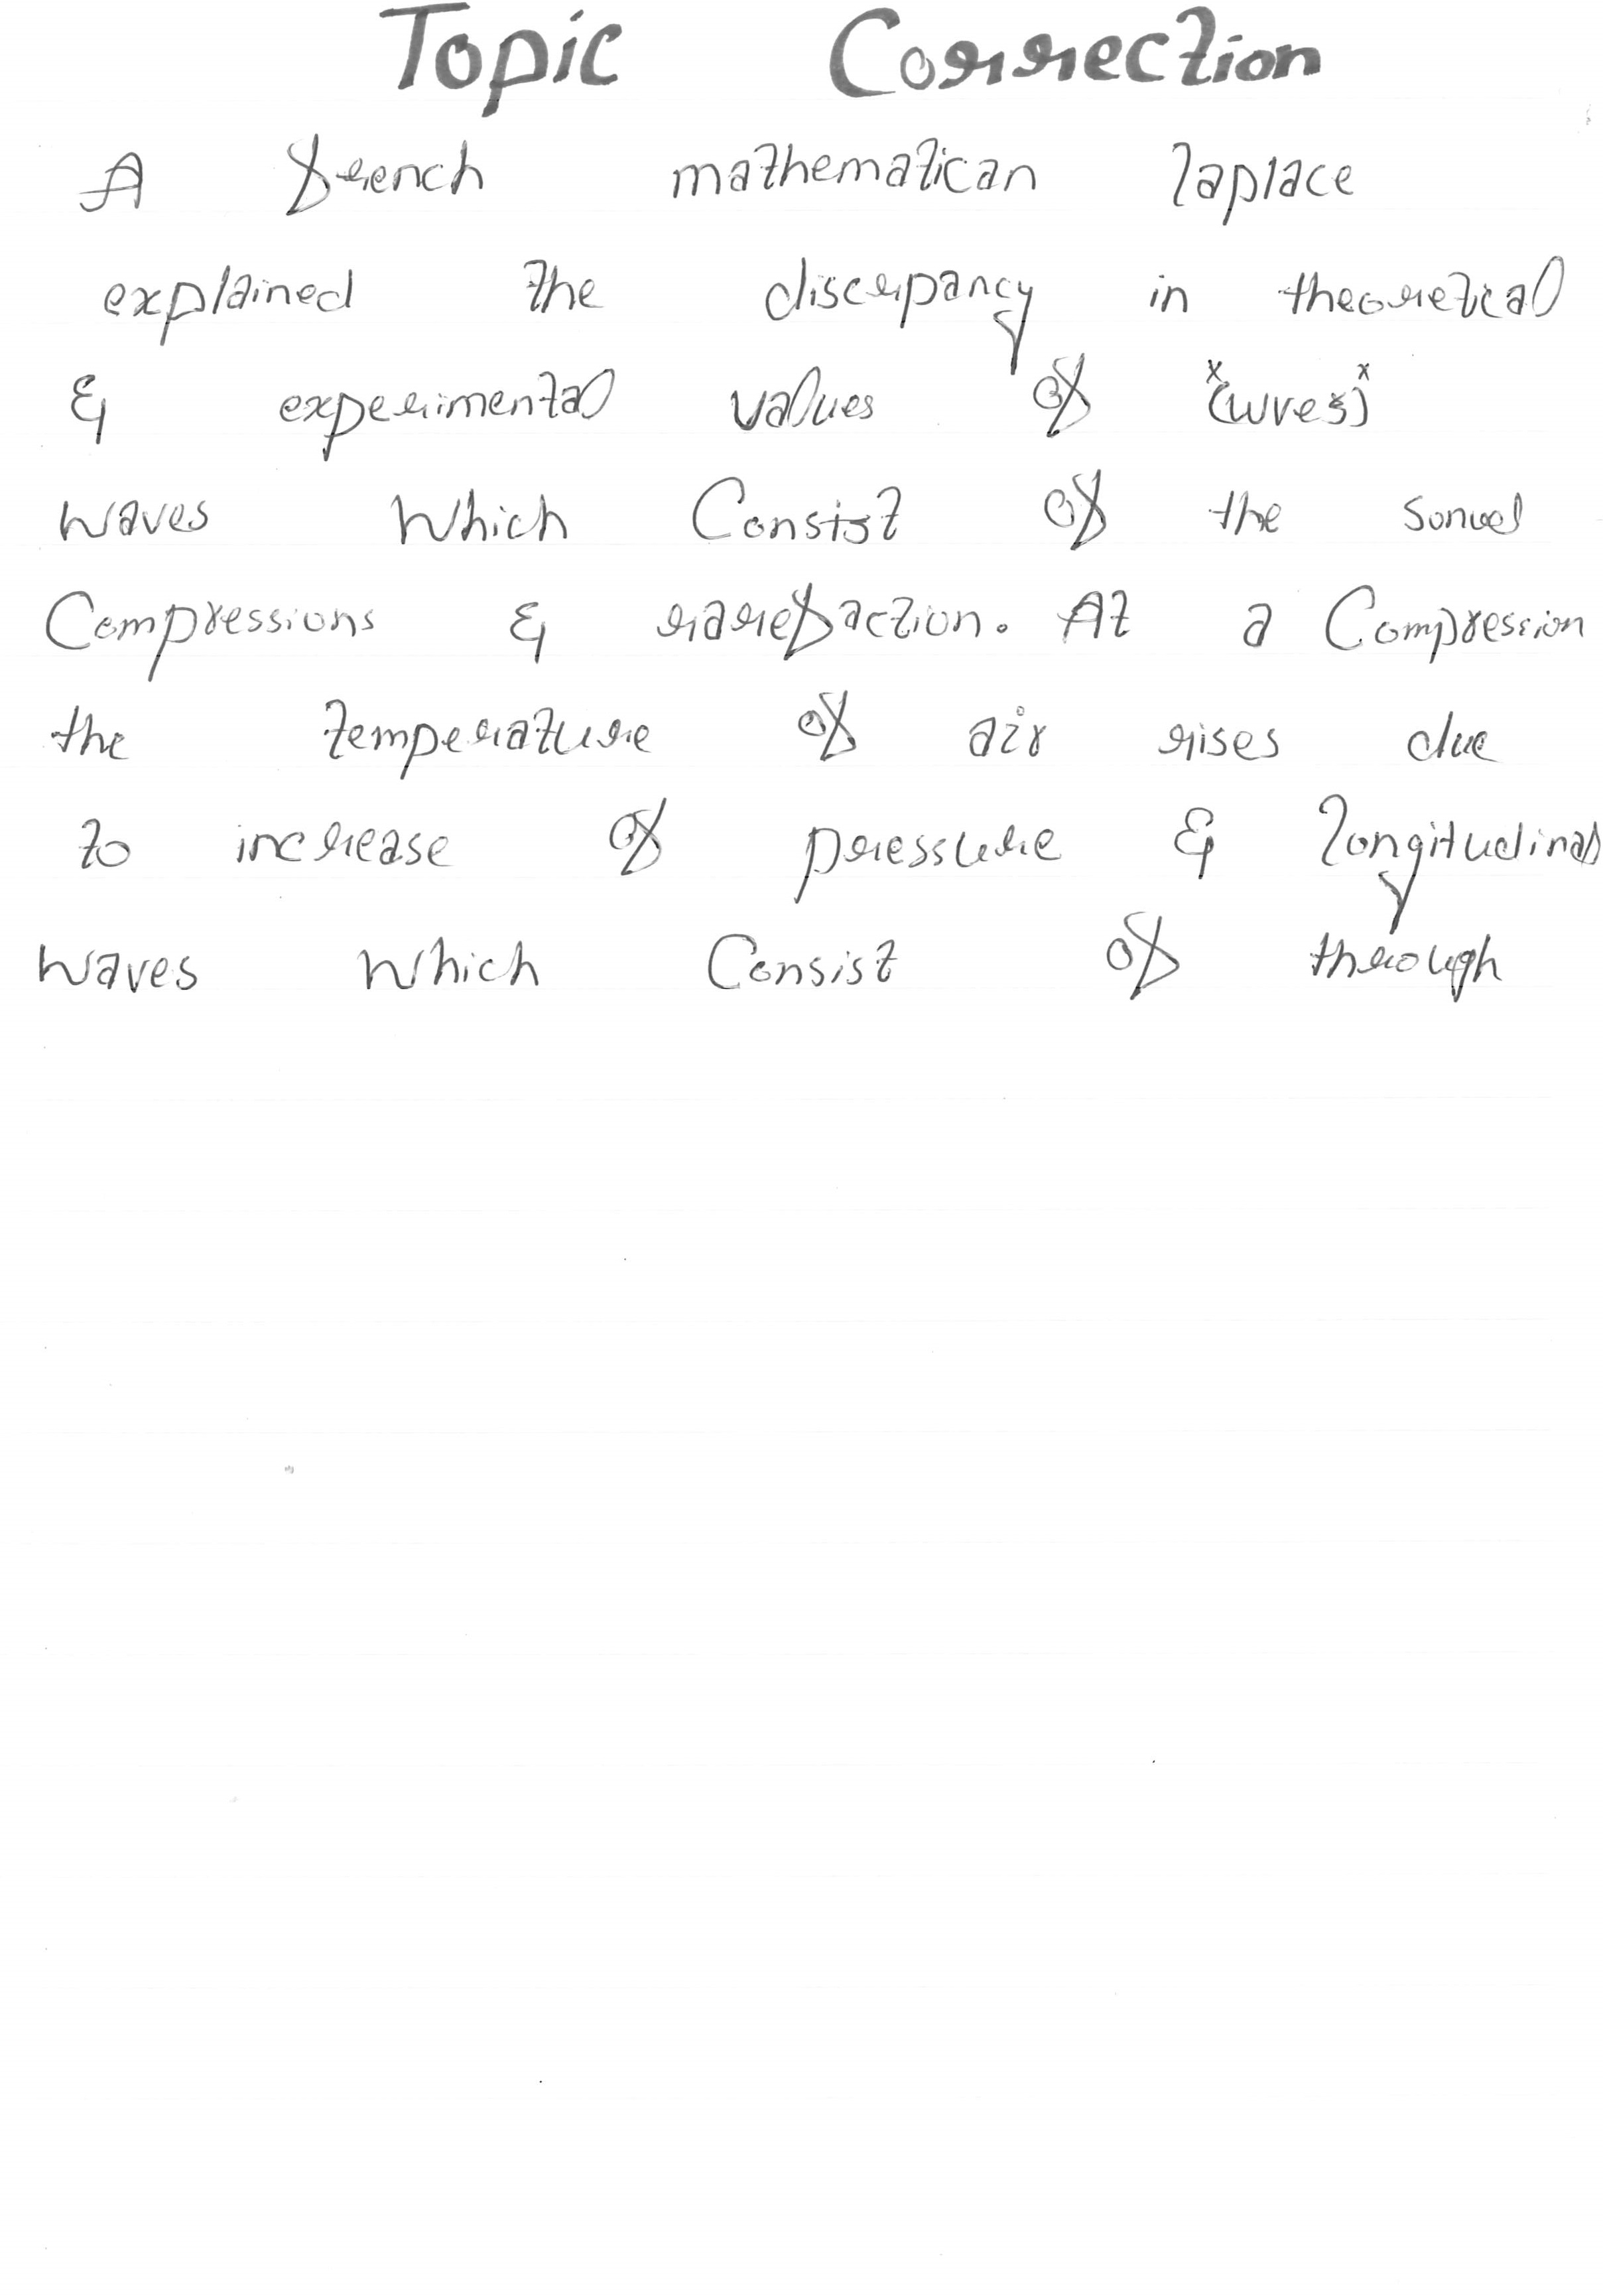 Topic Correction
A french mathematican laplace
explained the discrpancy in theoretical
& experimental values of (wves)
waves Which Consist of the sonud
Compressions & rarefaction. At a Compression
the temperature of air rises due
to increase of pressure & longitudinal
waves Which Consist of through